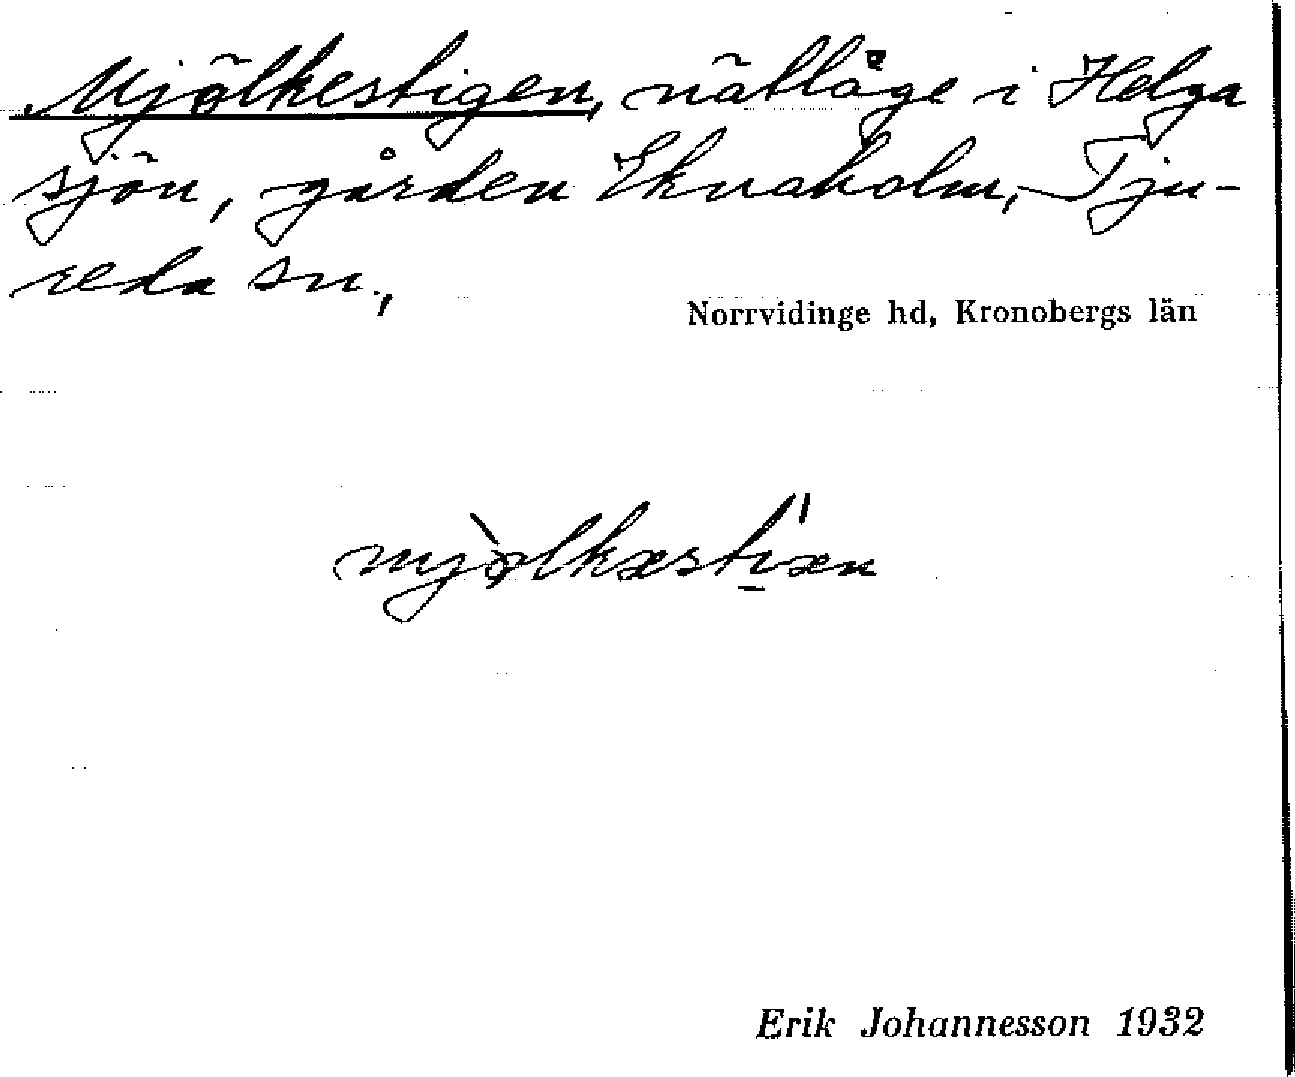 Mjölkestigen, nätläge i Helga
sjön, gården Eknaholm, Tju-
reda sn,
Norrvidinge hd, Kronobergs län
mjòlkæsti̠'æn
Erik Johannesson 1932